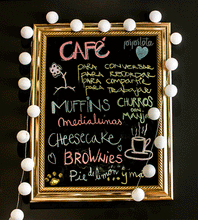 CAFÉ
PARA CONVERSAR
PARA RECORDAR
PARA COMPARTIR
PARA TRABAJAR
MUFFINS
CHURROS
CON
MANJAR
medialunas
CHEESECAKE
BROWNIES
Pie de limón y más